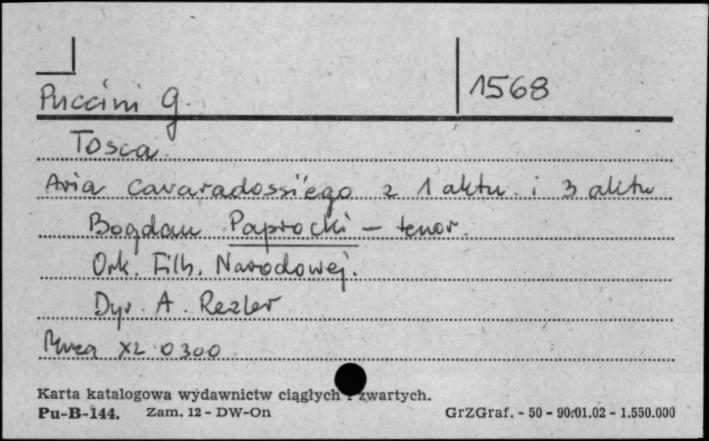 Puccini G.
1568
Tosca.
Aria Cavaradossi'ego z 1 aktu i 3 aktu
Bogdan Paprocki – tenor.
Ork. Filh. Narodowej.
Dyr. A. Rezler
Muza XL 0300
Karta katalogowa wydawnictw ciągłych i zwartych.
Pu-B-144. Zam. 12 - DW-On GrZGraf. - 50 - 90.01.02 - 1.550.000